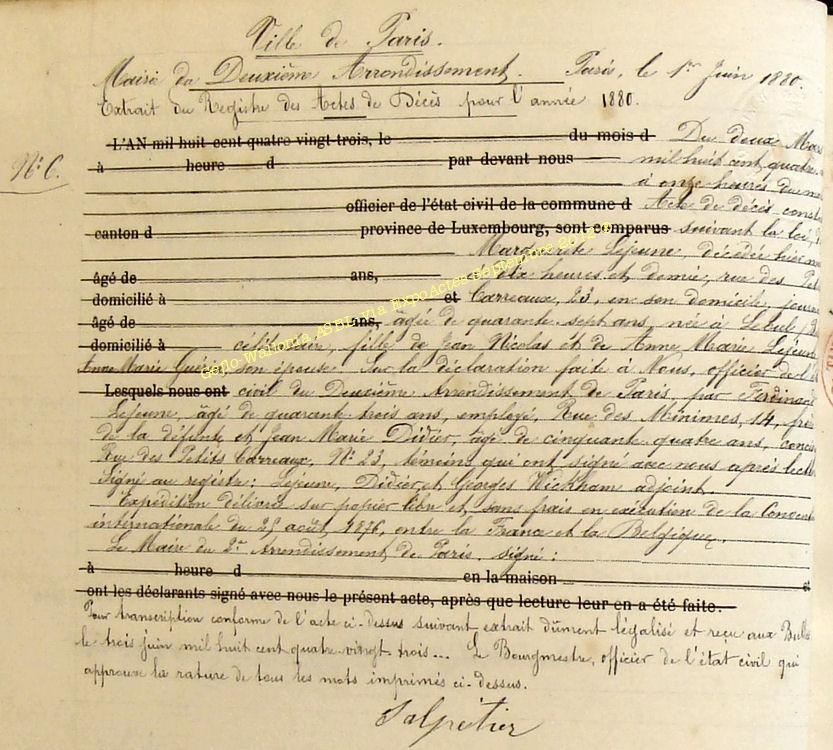 Ville de Paris.
Mairie du Deuxième Arrondissement. Paris, le 1er Juin 1880.
Extrait du Registre des Actes de Décès pour l'année 1880.
L'AN mil huit cent quatre vingt-trois, le du mois d Du deux Mars
N° 6. à heure d par devant nous mil huit cent quatre
à onze heures du
officier de l'état civil de la commune d Acte de décès
canton d province de Luxembourg, sont comparus suivant la loi, de
Marguerite Lejeune, décédée hier
âgé de ans, dix heures et demie, rue des Petits
domicilié à et Carreaux, 23, en son domicile,
âgé de ans, âgée de quarante-sept ans, née à
domicilié à célibataire, fille de Jean Nicolas et de Anne Marie Lejeune
Anne Marie son épouse. Sur la déclaration faite à Nous, officier de l'état
Lesquels nous ont civil du Deuxième Arrondissement de Paris, par Ferdinand
Lejeune, âgé de quarante trois ans, employé, Rue des Minimes, 14, frère
de la défunte et Jean Marie Didier, âgé de cinquante quatre ans,
Rue des Petits Carreaux, N° 23, témoins qui ont signé avec nous après lecture
Signé au registre: Lejeune, Didier, et Georges Wickham adjoint.
Expédition délivrée sur papier libre et sans frais en exécution de la
internationale du 25 août 1876, entre la France et la Belgique.
Le Maire du 2e Arrondissement de Paris. signé:
à heure d en la maison et
ont les déclarants signé avec nous le présent acte, après que lecture leur en a été faite.
Pour transcription conforme de l'acte ci-dessus suivant extrait dûment légalisé et reçu aux
le trois juin mil huit cent quatre-vingt-trois... Le Bourgmestre, officier de l'état civil qui
approuve la rature de tous les mots imprimés ci-dessus.
Salpétier
Généo-Wallonia ASBL, via ExpoActes Septembre 2012 ©